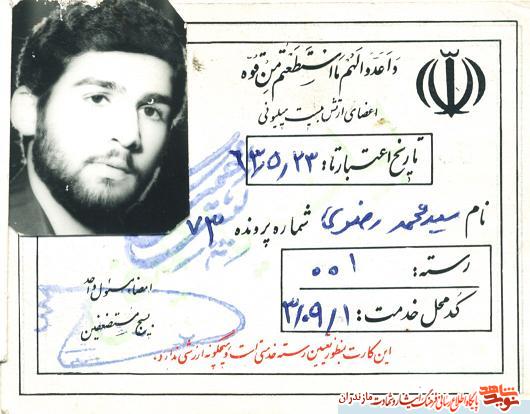 وَاَعِدّوا لَهُم مَا اسْتَطَعْتُم مِن قُوَّه
اعضای ارتش بیست میلیونی
تاریخ اعتبار تا: ۶۳،۵،۲۳
نام سید محمد رضوی شماره پرونده ۷۳
رسته: ۰۰۱
کد محل خدمت: ۳/۰۹/۱
امضاء مسئول واحد
بسیج مستضعفین
این کارت بمنظور تعیین رسته خدمتی است و هیچگونه ارزشی ندارد.
نوید شاهد
پایگاه اطلاع رسانی فرهنگ ایثار و شهادت مازندران